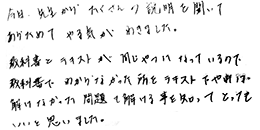 今日、先生から たくさんの 説明を聞いて
あらためて やる気が わきました。
教科書と テキストが 同じやつになっているので、
教科書で わからなかった所を テキストでやれば、
解けなかった 問題も 解ける事を知って とっても
いいと思いました。